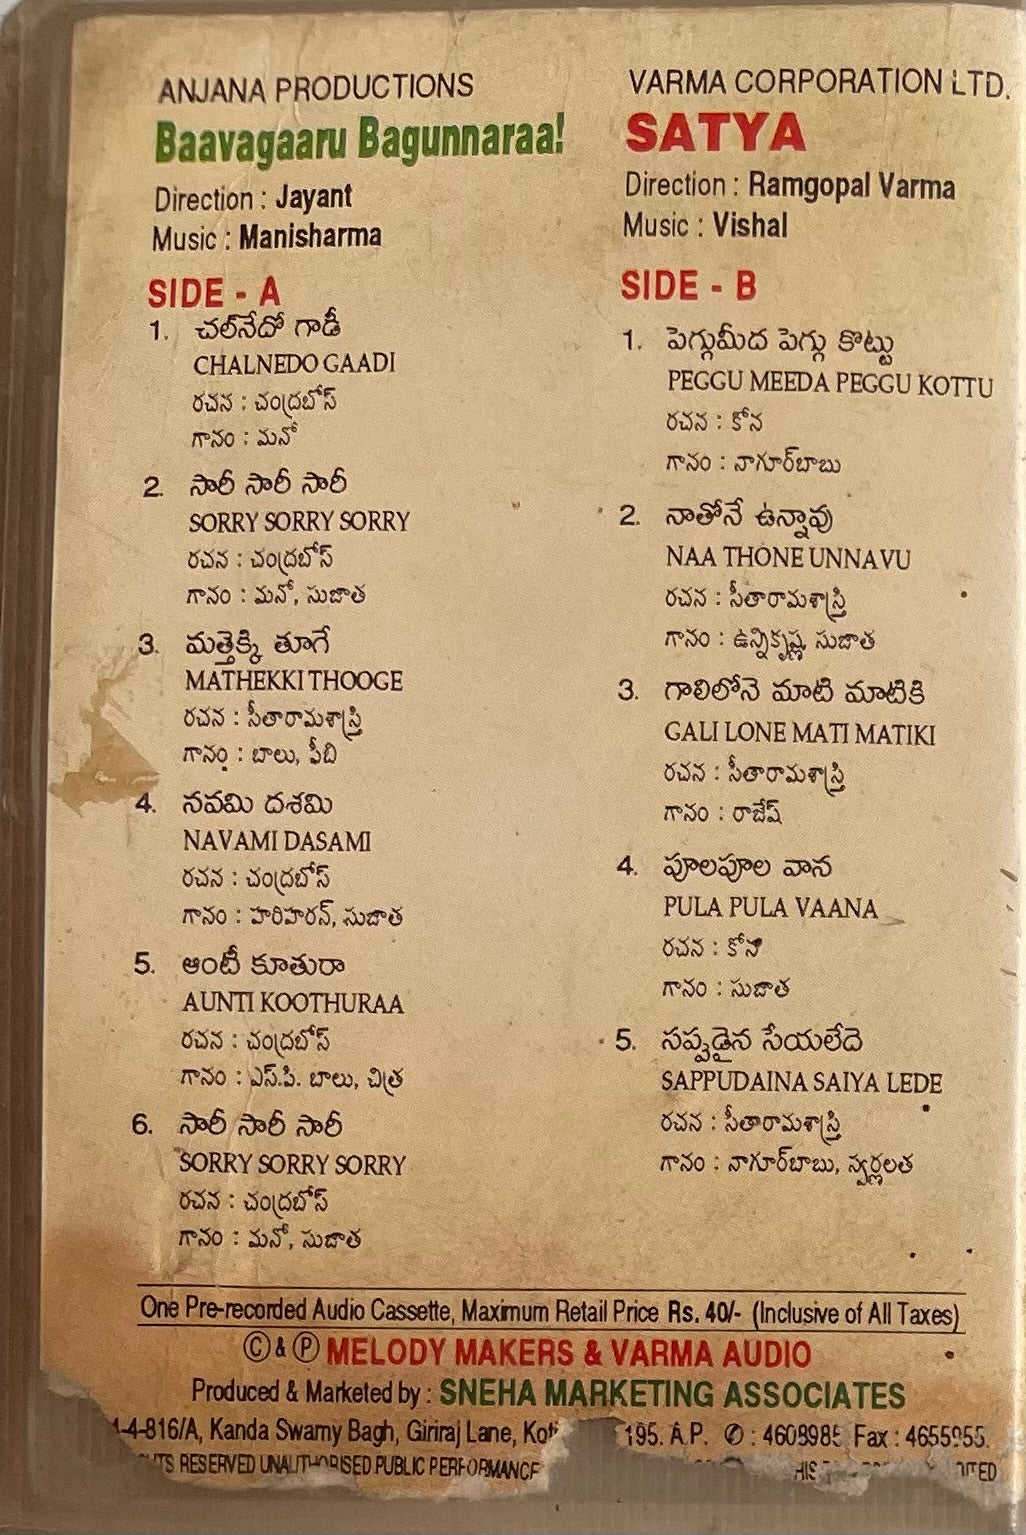 ANJANA PRODUCTIONS
Baavagaaru Bagunnaraa!
Direction : Jayant
Music : Manisharma
SIDE - A
1. చల్‌నేదో గాడీ
CHALNEDO GAADI
రచన : చంద్రబోస్
గానం : మనో
2. సారీ సారీ సారీ
SORRY SORRY SORRY
రచన : చంద్రబోస్
గానం : మనో, సుజాత
3. మత్తెక్కి తూగే
MATHEKKI THOOGE
రచన : సీతారామశాస్త్రి
గానం : బాలు, ఫీబి
4. నవమి దశమి
NAVAMI DASAMI
రచన : చంద్రబోస్
గానం : హరిహరన్, సుజాత
5. ఆంటీ కూతురా
AUNTI KOOTHURAA
రచన : చంద్రబోస్
గానం : ఎస్.పి. బాలు, చిత్ర
6. సారీ సారీ సారీ
SORRY SORRY SORRY
రచన : చంద్రబోస్
గానం : మనో, సుజాత
VARMA CORPORATION LTD.
SATYA
Direction : Ramgopal Varma
Music : Vishal
SIDE - B
1. పెగ్గుమీద పెగ్గు కొట్టు
PEGGU MEEDA PEGGU KOTTU
రచన : కోన
గానం : నాగూర్‌బాబు
2. నాతోనే ఉన్నావు
NAA THONE UNNAVU
రచన : సీతారామశాస్త్రి
గానం : ఉన్నికృష్ణ, సుజాత
3. గాలిలోనె మాటి మాటికి
GALI LONE MATI MATIKI
రచన : సీతారామశాస్త్రి
గానం : రాజేష్
4. పూలపూల వాన
PULA PULA VAANA
రచన : కోన
గానం : సుజాత
5. సప్పుడైన సేయలేదె
SAPPUDAINA SAIYA LEDE
రచన : సీతారామశాస్త్రి
గానం : నాగూర్‌బాబు, స్వర్ణలత
One Pre-recorded Audio Cassette, Maximum Retail Price Rs. 40/- (Inclusive of All Taxes)
Ⓒ & Ⓟ MELODY MAKERS & VARMA AUDIO
Produced & Marketed by : SNEHA MARKETING ASSOCIATES
4-816/A, Kanda Swamy Bagh, Giriraj Lane, 195. A.P. ✆ : Fax : 4655955.
RESERVED UNAUTHORISED PUBLIC PERFORMANCE